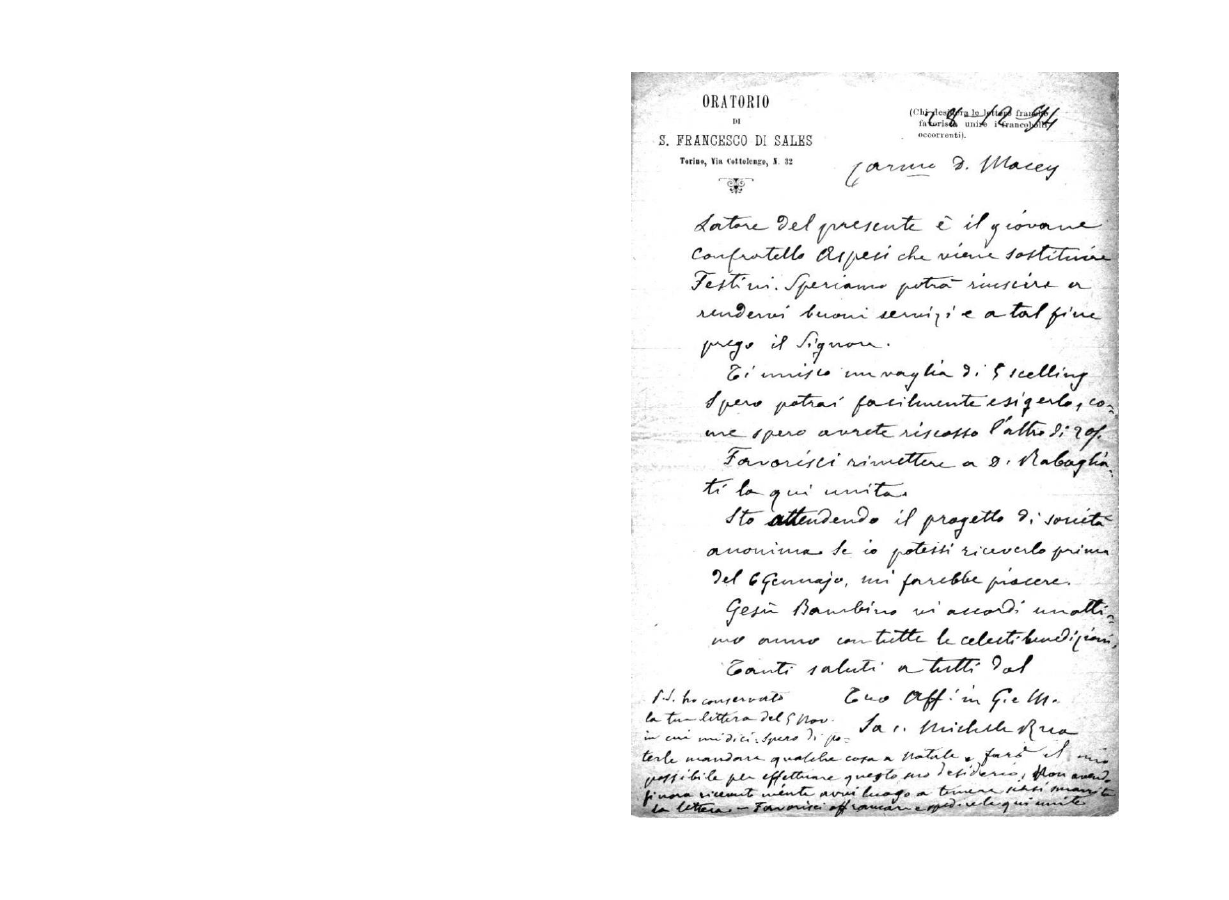 ORATORIO
DI
S. FRANCESCO DI SALES
Torino, Via Cottolengo, N. 32
(Chi desidera le lettere franche
favorisca unire i francobolli
occorrenti).
28 12 94
Carmo D. Macey
Latore del presente è il giovane
Confratello Aspesi che viene sostituire
Festini. Speriamo potrà riuscire a
rendervi buoni servizi e a tal fine
prego il Signore.
Ti unisco un vaglia di 5 scelling
Spero potrai facilmente esigerlo, co-
me spero avrete riscosso l'altro di 20s.
Favorisci rimettere a D. Rabaglia-
ti la qui unita.
Sto attendendo il progetto di società
anonima. Se io potessi riceverlo prima
del 6 Gennajo, mi farebbe piacere.
Gesù Bambino vi accordi un otti-
mo anno con tutte le celesti benedizioni,
Tanti saluti a tutti dal
Tuo Aff. in G. e M.
Sac. Michele Rua
P.S. ho conservato
la tua lettera del 5 Nov.
in cui mi dici: spero di po-
terle mandare qualche cosa a Natale e farò il mio
possibile per effettuare questo suo desiderio, Non avendo
finora ricevuto niente avvi luogo a temere siasi smarrita
la lettera. - Favorisci affrancare e spedire le qui unite